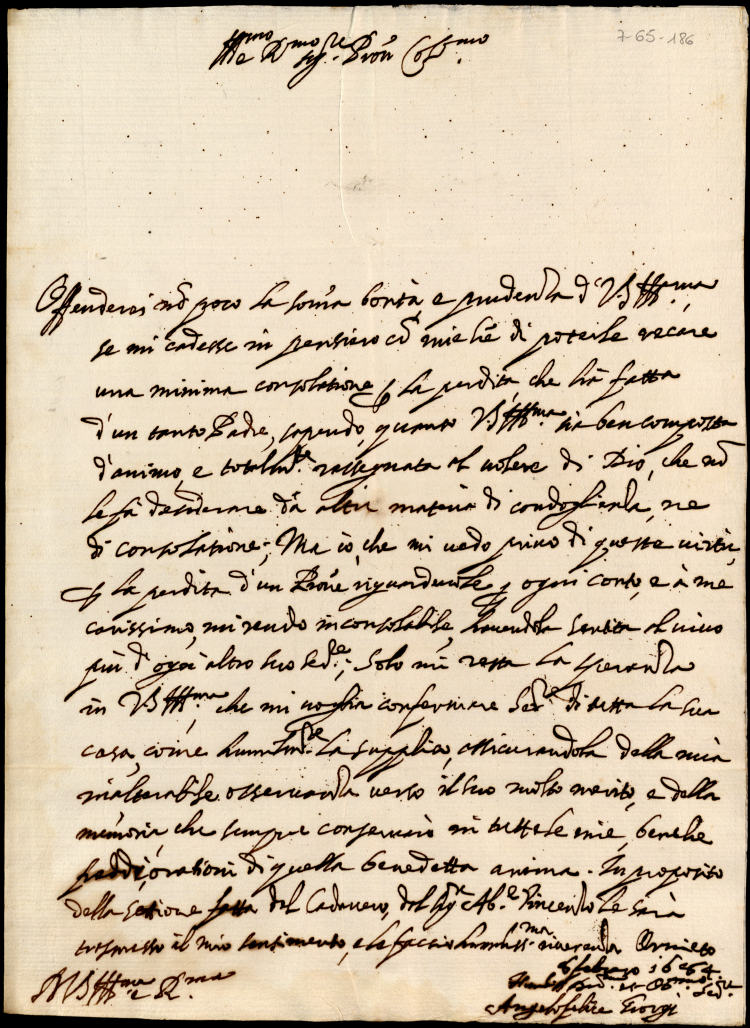 Ill.mo e R.mo Sig.re Pron Col.mo
7-65-186
Offenderei nō poco la somma bontà, e prudenza di V.S. Ill.ma,
se mi cadesse in pensiero cō mie di poterle recare
una minima consolatione p la perdita, che hà fatta
d'un tanto Padre, sapendo, quanto V.S. Ill.ma sia ben composta
d'animo, e totalm.te rassegnata al volere di Dio, che nō
le fà desiderare dà altri materia di condoglienza, ne
di consolatione; Ma io, che mi vedo privo di queste virtù,
p la perdita d'un Prōne riguardevole p ogni conto, e à me
carissimo, mi rendo inconsolabile, havendola sentita al vivo
più d'ogni altro suo Sed.e; Solo mi resta la speranza
in V.S. Ill.ma, che mi voglia confermare Se.re di tutta la sua
casa, come humilm.te la supplico, assicurandola della mia
inalterabile osservanza verso il suo molto merito, e della
memoria, che sempre conservarò in tutte le mie, benche
fredde, orationi di quella benedetta anima. In proposito
della Settione fatta del Cadavero, dal Sig.r Ab.e Vincenzo le sarà
trasmesso il mio sentimento, e le faccio humiliss.ma riverenza Orvieto
6 febraro 1664
D V.S. Ill.ma e R.ma
Humiliss.o Div.mo et Ob.mo Se.re
Angelo felice Giorgi